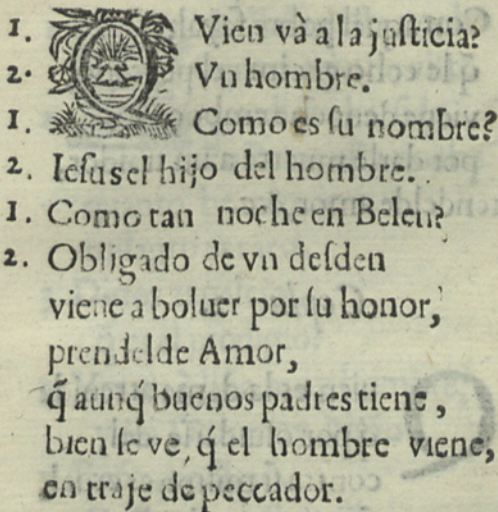 1. QVien và a la juſticia?
2. Vn hombre.
1. Como es ſu nombre?
2. Ieſus el hijo del hombre.
1. Como tan noche en Belen?
2. Obligado de vn deſden
viene a boluer por ſu honor,
prendelde Amor,
q̃ aunq́ buenos padres tiene,
bien ſe ve, q́ el hombre viene,
en traje de peccador.